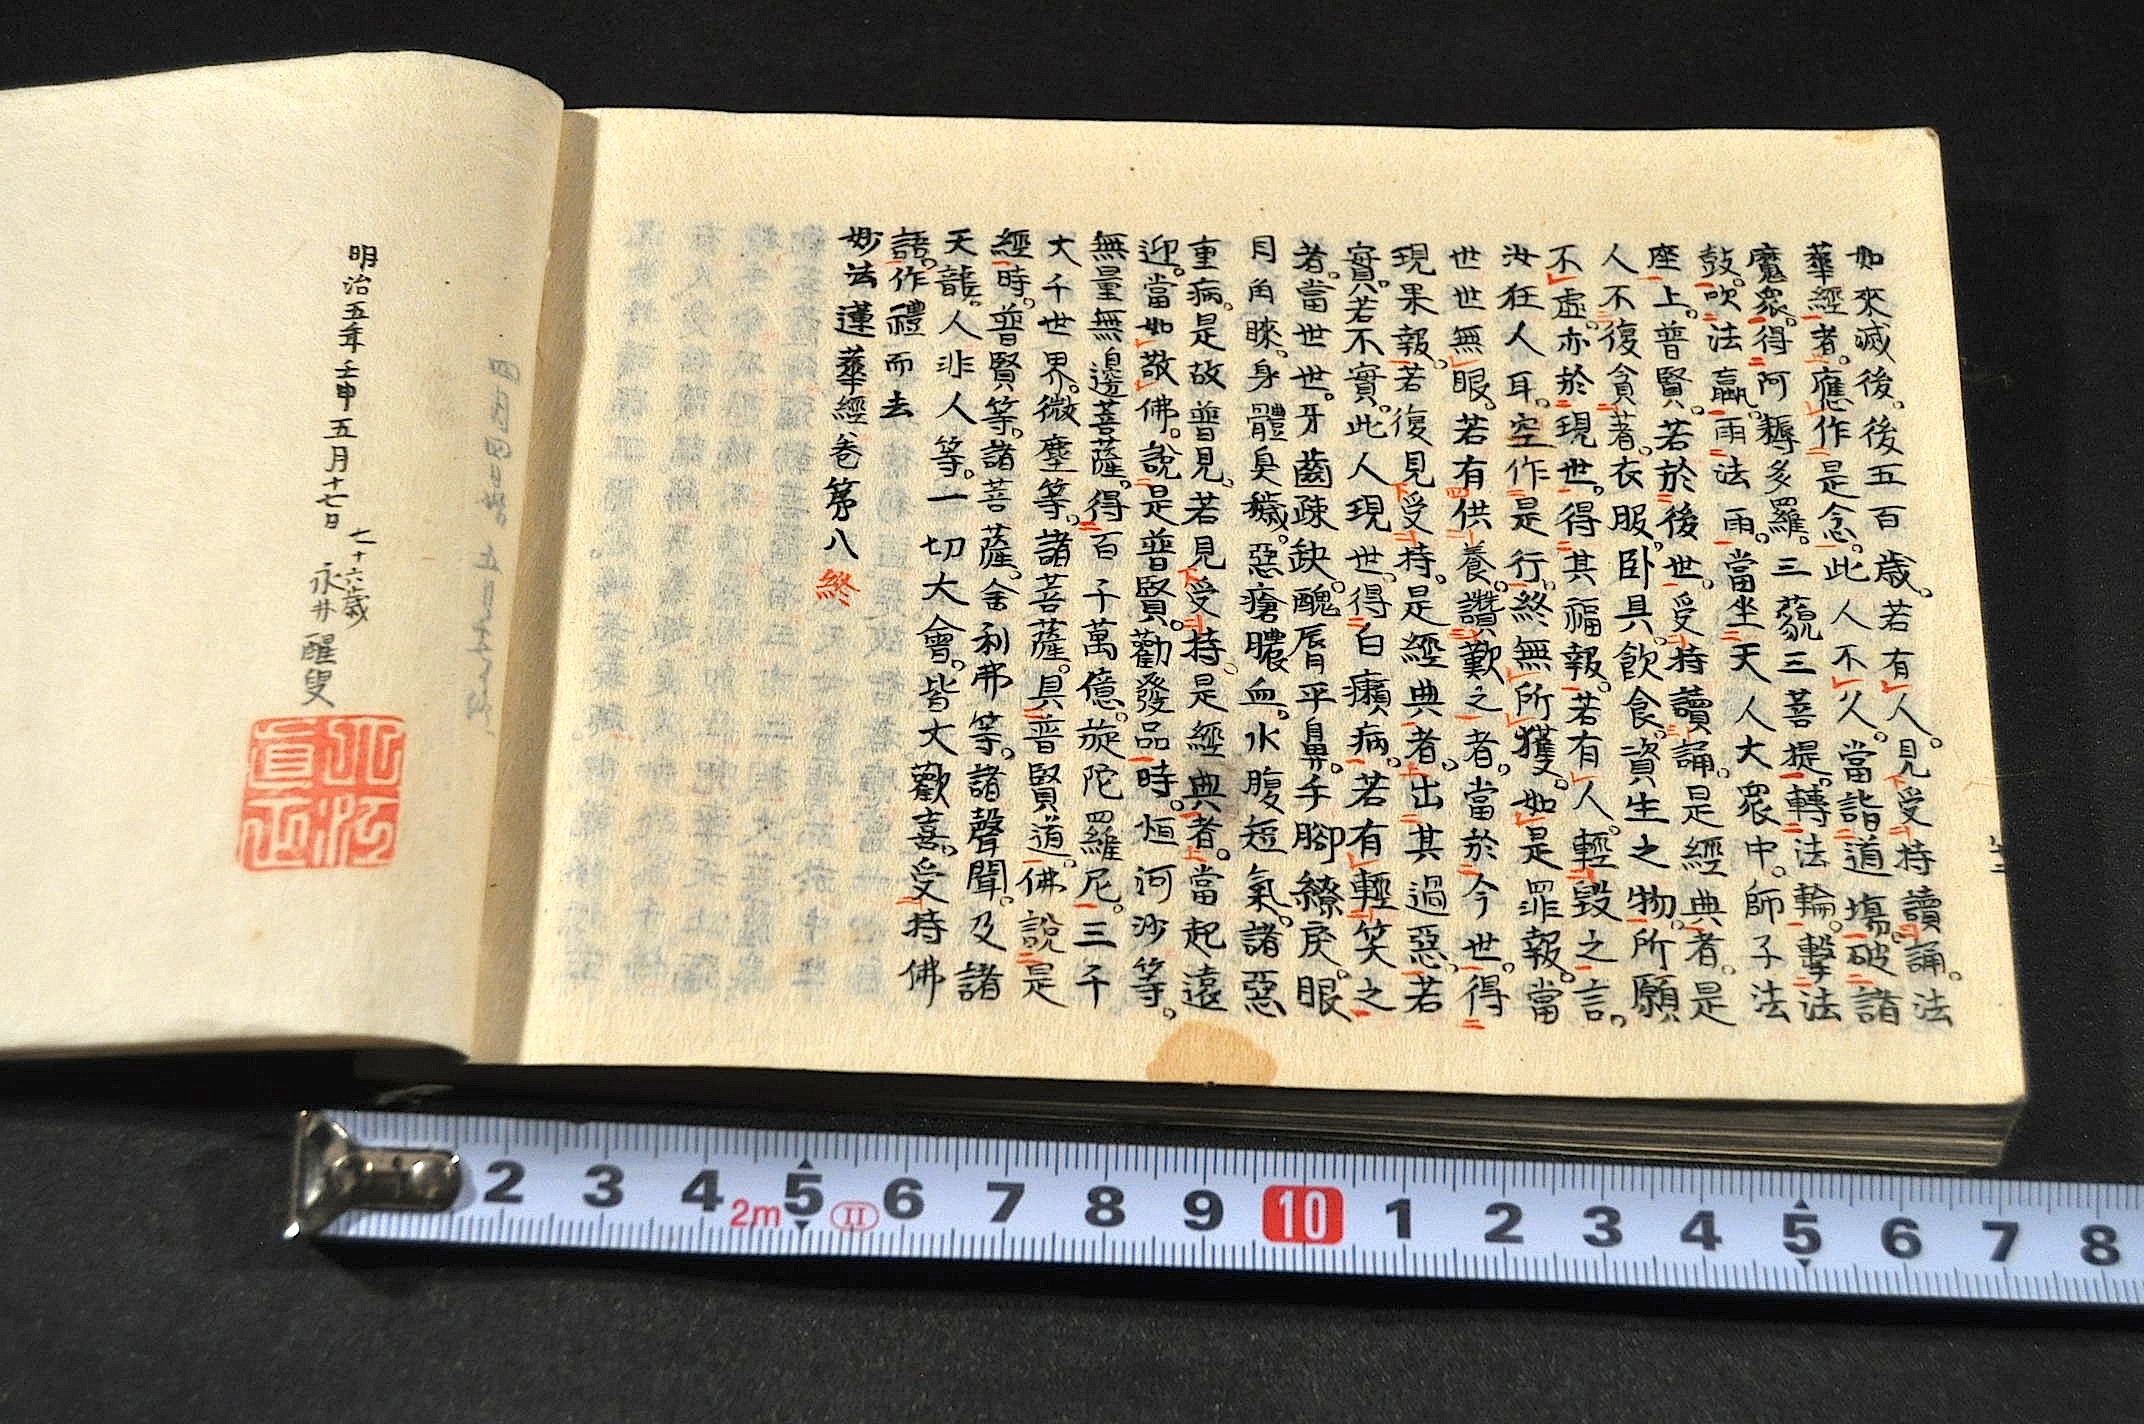 如來滅後。後五百歳。若有人。見受持讀誦。法
華經者。應作是念。此人不久。當詣道塲。破諸
魔衆。得阿耨多羅。三藐三菩提。轉法輪。擊法
鼓。吹法蠃。雨法雨。當坐天人大衆中。師子法
座上。普賢。若於後世。受持讀誦。是經典者。是
人不復貪著。衣服。卧具。飮食。資生之物。所願
不虛。亦於現世。得其福報。若有人。輕毀之言。
汝狂人耳。空作是行。終無所獲。如是罪報。當
世世無眼。若有供養。讚歎之者。當於今世。得
現果報。若復見受持。是經典者。出其過惡。若
實。若不實。此人現世。得白癩病。若有輕笑之
者。當世世。牙齒疎缺。醜脣平鼻。手腳繚戾。眼
目角睞。身體臭穢。惡瘡膿血。水腹短氣。諸惡
重病。是故普見。若見受持。是經典者。當起遠
迎。當如敬佛。說是普賢。勸發品時。恒河沙等。
無量無邊菩薩。得百千萬億。旋陀羅尼。三千
大千世界。微塵等。諸菩薩。具普賢道。佛說是
經時。普賢等。諸菩薩。舍利弗等。諸聲聞。及諸
天龍。人非人等。一切大會。皆大歡喜。受持佛
語。作禮而去
妙法蓮華經卷第八 終
明治五年壬申五月十七日
七十六歳
永井醒叟
2 3 4 5 6 7 8 9 10 1 2 3 4 5 6 7 8
2m
II